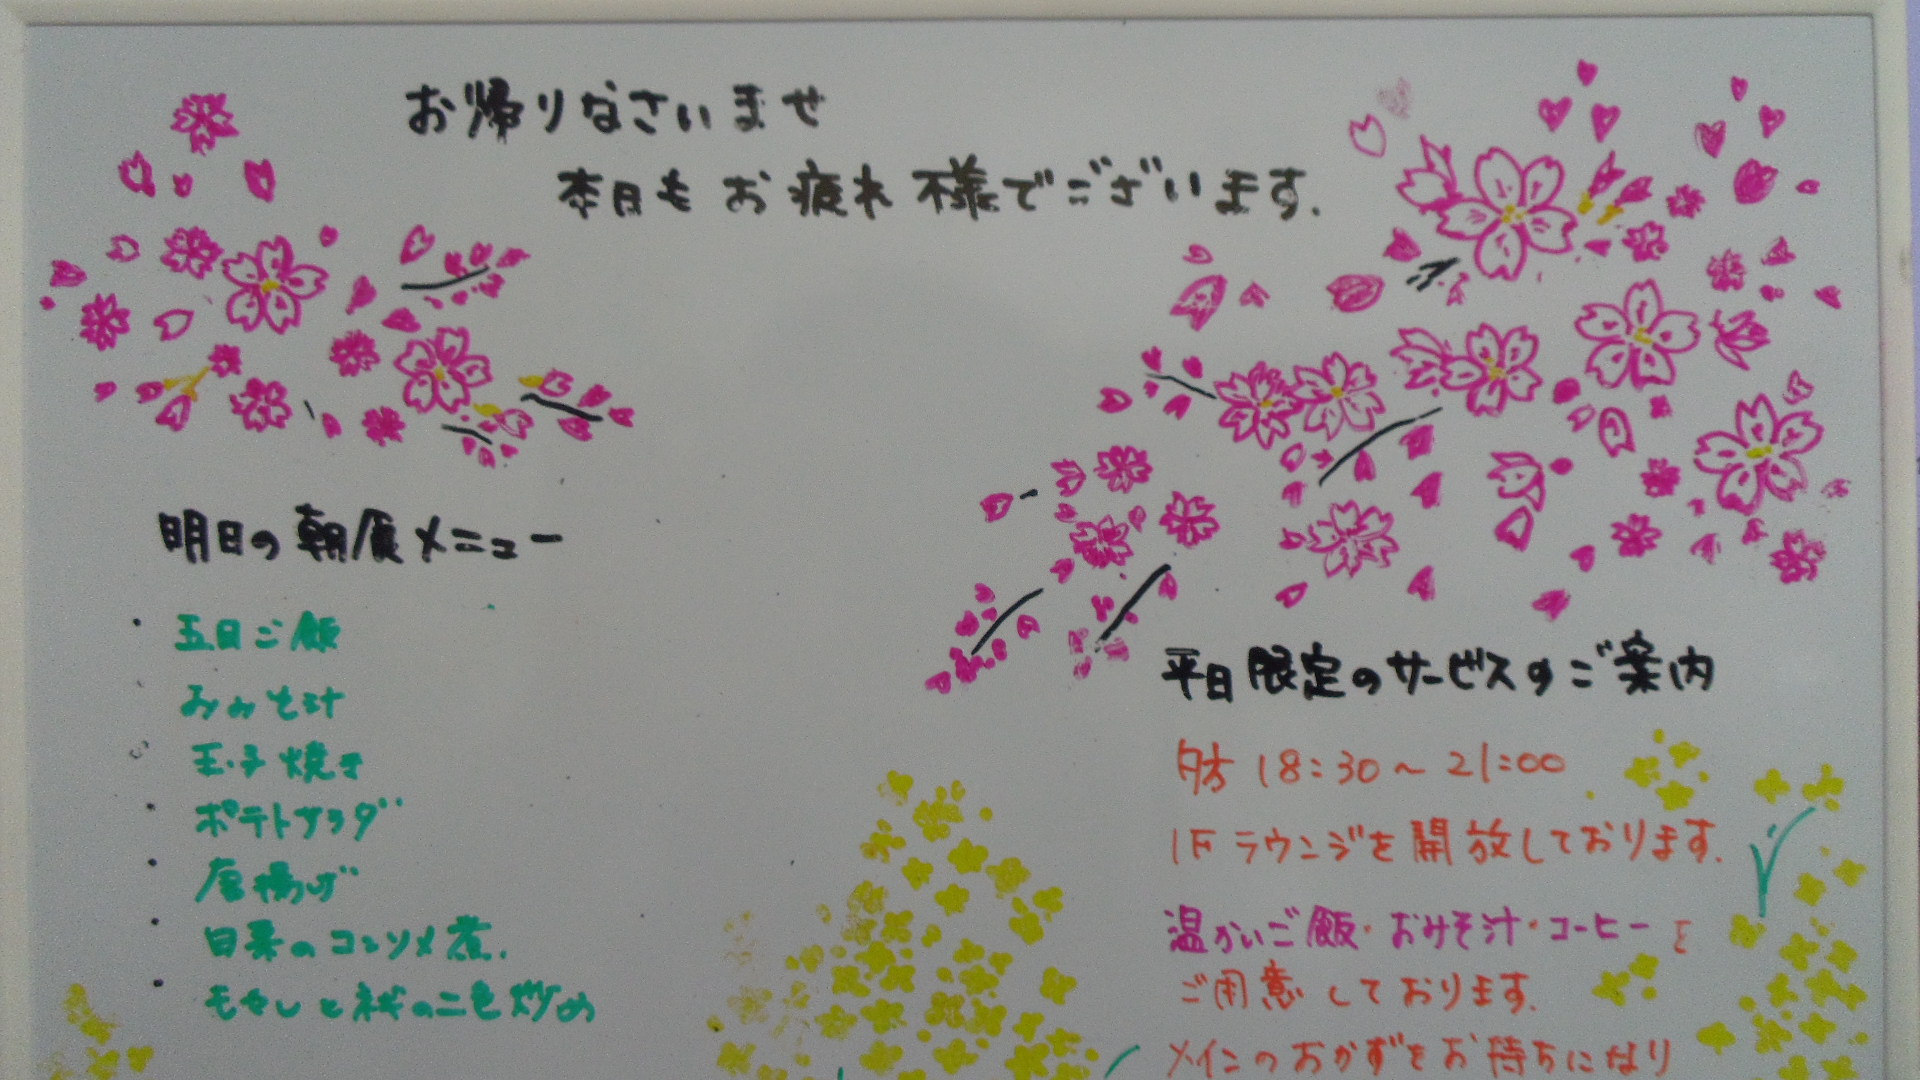 お帰りなさいませ
本日もお疲れ様でございます.
明日の朝食メニュー
・五目ご飯
・おみそ汁
・玉子焼き
・ポテトサラダ
・唐揚げ
・白菜のコンソメ煮.
・もやしとネギの二色炒め
平日限定のサービスのご案内
夕方 18:30～21:00
1Fラウンジを開放しております.
温かいご飯・おみそ汁・コーヒーを
ご用意しております.
メインのおかずをお持ちになり